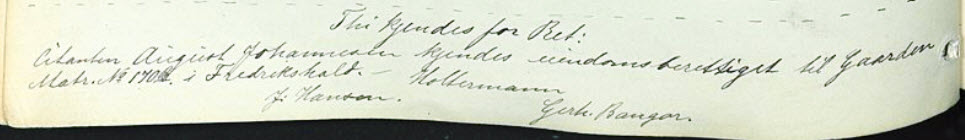 Thi kjendes for Ret:
Citanten August Johannesen kjendes eiendomsberettiget til Gaarden
Matr. № 170 i Fredrikshald. – Holtermann
J. Hansen. Gerh. Bangor.